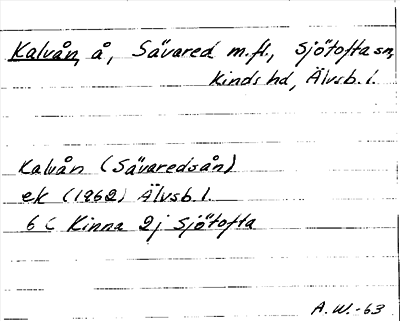 Kalvån, å, Sävared m.fl., Sjötofta sn,
Kinds hd, Älvsb. l.
Kalvån (Sävaredsån)
ek (1962) Älvsb. l.
6 C Kinna 2j Sjötofta
A. W. -63